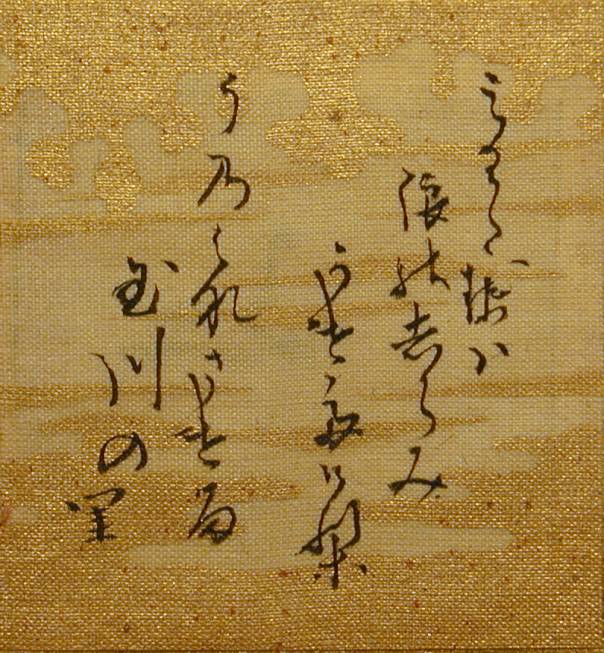 みわたせは
浪のしからみ
かけてけり
うのはなさける
玉川の里